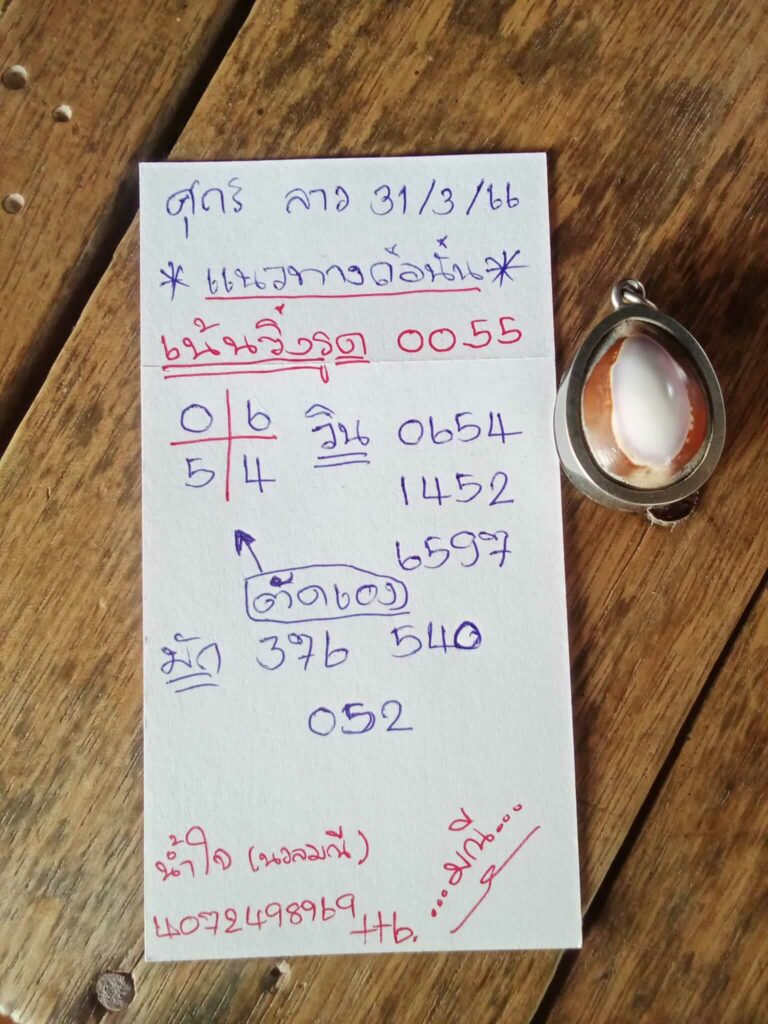 ศุกร์ ลาว 31/3/66
*แนวทางก่อนั้น*
เน้นวิ่งรูด 0055
0 6 วิน 0654
5 4 1452
6597
ตัดเอง
มัด 376 540
052
น้ำใจ (นวลมณี)
4072498969 ttb.
...มณี...